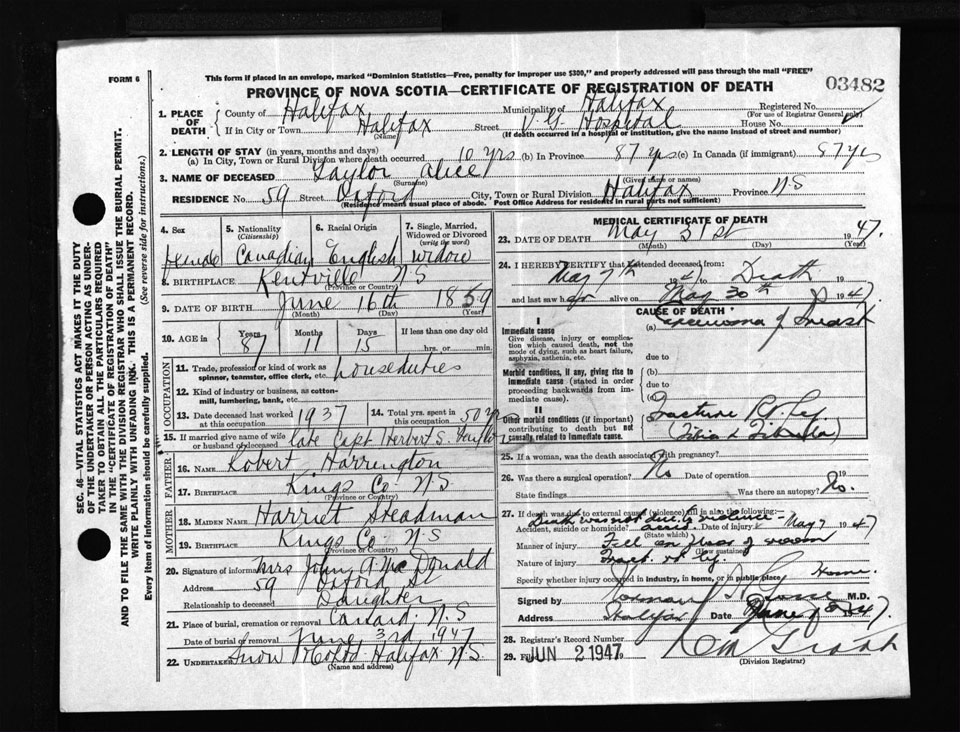 FORM 6
This form if placed in an envelope, marked "Dominion Statistics—Free, penalty for improper use $300," and properly addressed will pass through the mail "FREE"
PROVINCE OF NOVA SCOTIA—CERTIFICATE OF REGISTRATION OF DEATH
03482
1. PLACE OF DEATH
County of Halifax Municipality of Halifax Registered No.
(For use of Registrar General only)
If in City or Town Halifax Street V. G. Hospital House No.
(Name) (If death occurred in a hospital or institution, give the name instead of street and number)
2. LENGTH OF STAY (in years, months and days)
(a) In City, Town or Rural Division where death occurred 10 yrs (b) In Province 87 yrs (c) In Canada (if immigrant) 87 yrs
3. NAME OF DECEASED Taylor Alice
(Surname) (Given name or names)
RESIDENCE No. 59 Street Oxford City, Town or Rural Division Halifax Province N.S
(Residence means usual place of abode. Post Office Address for residents in rural parts not sufficient)
4. Sex 5. Nationality (Citizenship) 6. Racial Origin 7. Single, Married, Widowed or Divorced (write the word)
Female Canadian English Widow
8. BIRTHPLACE Kentville N S
(Province or Country)
9. DATE OF BIRTH June 16th 1859
(Month) (Day) (Year)
10. AGE in Years Months Days If less than one day old
87 11 15 hrs. or min.
OCCUPATION
11. Trade, profession or kind of work as spinner, teamster, office clerk, etc. housduties
12. Kind of industry or business, as cotton-mill, lumbering, bank, etc.
13. Date deceased last worked at this occupation 1937 14. Total yrs. spent in this occupation 50 yrs
15. If married give name of wife or husband of deceased late Capt Herbert S. Taylor
FATHER
16. NAME Robert Harrington
17. BIRTHPLACE Kings Co N.S
(Province or Country)
MOTHER
18. MAIDEN NAME Harriet Steadman
19. BIRTHPLACE Kings Co N.S
(Province or Country)
20. Signature of informant Mrs John A. McDonald
Address 59 Oxford St
Relationship to deceased Daughter
21. Place of burial, cremation or removal Canard N.S
Date of burial or removal June 3rd 1947
22. Undertaker Snow & Co Ltd Halifax N.S
MEDICAL CERTIFICATE OF DEATH
23. DATE OF DEATH May 31st 1947
(Month) (Day) (Year)
24. I HEREBY CERTIFY that I attended deceased from:
May 7th 1947 to Death 19
and last saw her alive on May 30th 1947
CAUSE OF DEATH
I
Immediate cause
Give disease, injury or complication which caused death, not the mode of dying, such as heart failure, asphyxia, asthenia, etc.
(a) Carcinoma of breast
due to
Morbid conditions, if any, giving rise to immediate cause (stated in order proceeding backwards from immediate cause).
(b)
due to
(c)
II
Other morbid conditions (if important) contributing to death but not causally related to immediate cause.
Fracture Rt leg
(Tibia & Fibula)
25. If a woman, was the death associated with pregnancy?
26. Was there a surgical operation? No Date of operation 19
State findings Was there an autopsy? No.
27. If death was due to external causes (violence) fill in also the following:
Death was not due to violence
Accident, suicide or homicide? Date of injury May 7 1947
(State which)
Manner of injury Fell on floor of room
(How sustained)
Nature of injury Fract. rt leg.
Specify whether injury occurred in industry, in home, or in public place Home.
Signed by Norman M.D.
Address Halifax Date June 1947.
28. Registrar's Record Number
29. Filed JUN 2 1947 19
(Division Registrar)
SEC. 46—VITAL STATISTICS ACT MAKES IT THE DUTY
OF THE UNDERTAKER OR PERSON ACTING AS UNDER-
TAKER TO OBTAIN ALL THE PARTICULARS REQUIRED
IN THE "CERTIFICATE OF REGISTRATION OF DEATH"
AND TO FILE THE SAME WITH THE DIVISION REGISTRAR WHO SHALL ISSUE THE BURIAL PERMIT.
WRITE PLAINLY WITH UNFADING INK. THIS IS A PERMANENT RECORD.
Every item of information should be carefully supplied. (See reverse side for instructions.)